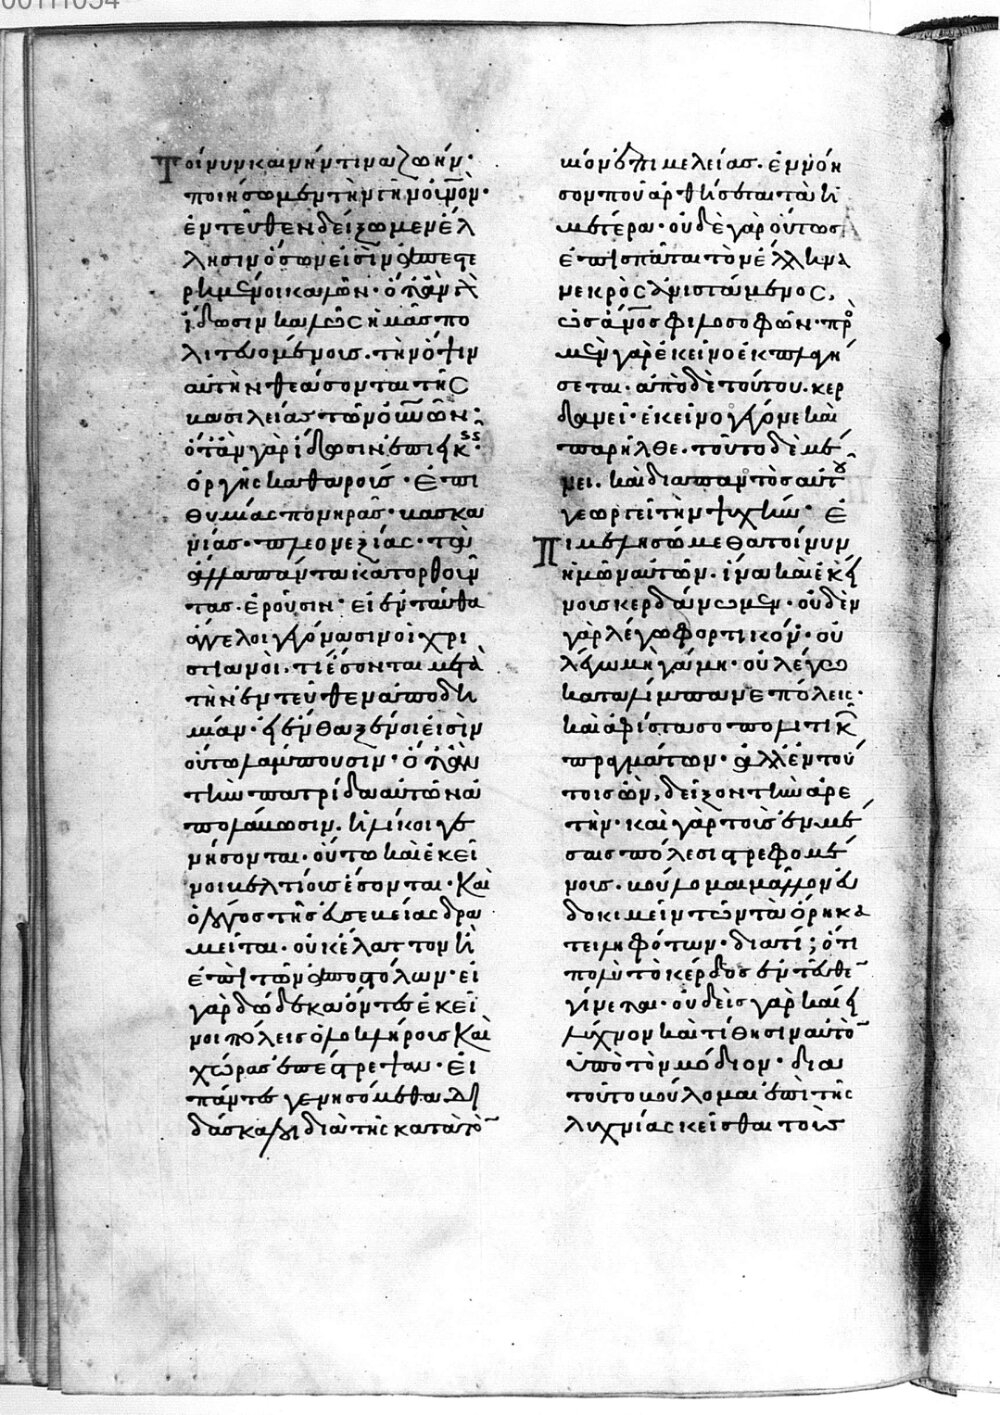 τοίνυν καινήν τινα ζωήν·
ποιήσωμεν τὴν γῆν οὐνὸν·
ἐντεῦθεν δείξωμεν ἕλ
λησιν ὅσων εἰσὶν ἀπεστε
ρημένοι καλῶν· ὅταν γὰρ
ἴδωσιν καλῶς ἡμᾶς πο
λιτευομένους· τὴν ὄψιν
αὐτὴν θεάσονται τῆς
βασιλείας τῶν οὐνῶν·
ὅταν γὰρ ἴδωσιν ἐπιεικεῖς·
ὀργῆς καθαρούς· ἐπι
θυμίας πονηρᾶς· βασκα
νίας· πλεονεξίας· τὰ
ἄλλα πάντα κατορθοῦν
τας· ἐροῦσιν· εἰ ἐνταῦθα
ἄγγελοι γεγόνασιν οἱ χρι
στιανοὶ· τί ἔσονται μετὰ
τὴν ἐντεῦθεν ἀποδη
μίαν· εἰ ἔνθα ξένοι εἰσὶν
οὕτω λάμπουσιν· ὅταν
τὴν πατρίδα αὐτῶν ἀ
πολάβωσιν· ἡλίκοι γε
νήσονται· οὕτω καὶ ἐκεῖ
νοι βελτίους ἔσονται· Καὶ
ὁ λόγος τῆς εὐσεβείας δρα
μεῖται· οὐκ ἔλαττον ἢ
ἐπὶ τῶν ἀποστόλων· εἰ
γὰρ δώδεκα ὄντες ἐκεῖ
νοι πόλεις ὁλοκλήρους Καὶ
χώρας ἐπέστρεψαν· Εἰ
πάντες γενησόμεθα δι
δάσκαλοι διὰ τῆς κατὰ τὸν
βίον ἐπιμελείας· ἐννόη
σον ποῦ ἀρθήσεται τὰ ἡ
μέτερα· οὐδὲ γὰρ οὕτως
ἐπισπᾶται τὸν ἕλληνα
νεκρὸς ἀνιστάμενος,
ὡς ἄνος φιλοσοφῶν· πρὸς
μὲν γὰρ ἐκεῖνο ἐκπλαγή
σεται· ἀπὸ δὲ τούτου· κερ
δανεῖ· ἐκεῖνο γέγονε καὶ
παρῆλθε· τοῦτο δὲ μέ
νει· καὶ διαπαντὸς αὐτοῦ
γεωργεῖ τὴν ψυχήν· Ἐ
πιμελησώμεθα τοίνυν
ἡμῶν αὐτῶν· ἵνα καὶ ἐκεί
νους κερδάνωμεν· οὐδὲν
γὰρ λέγω φορτικόν· οὐ
λέγω μὴ γάμει· οὐ λέγω
κατάλιμπανε πόλεις·
καὶ ἀφίστασο πολιτικῶν
πραγμάτων· ἀλλ' ἐν τού
τοις ὢν, δεῖξον τὴν ἀρε
τήν· καὶ γὰρ τοὺς ἐν μέ
σαις πόλεσι στρεφομέ
νους· βούλομαι μᾶλλον εὐ
δοκιμεῖν τῶν τὰ ὄρη κα
τειληφότων· διατί; ὅτι
πολὺ τὸ κέρδος ἐντεῦθεν
γίνεται· οὐδεὶς γὰρ καίει
λύχνον καὶ τίθησιν αὐτὸν
ὑπὸ τὸν μόδιον· δια
τοῦτο βούλομαι ἐπὶ τῆς
λυχνίας κεῖσθαι τοὺς